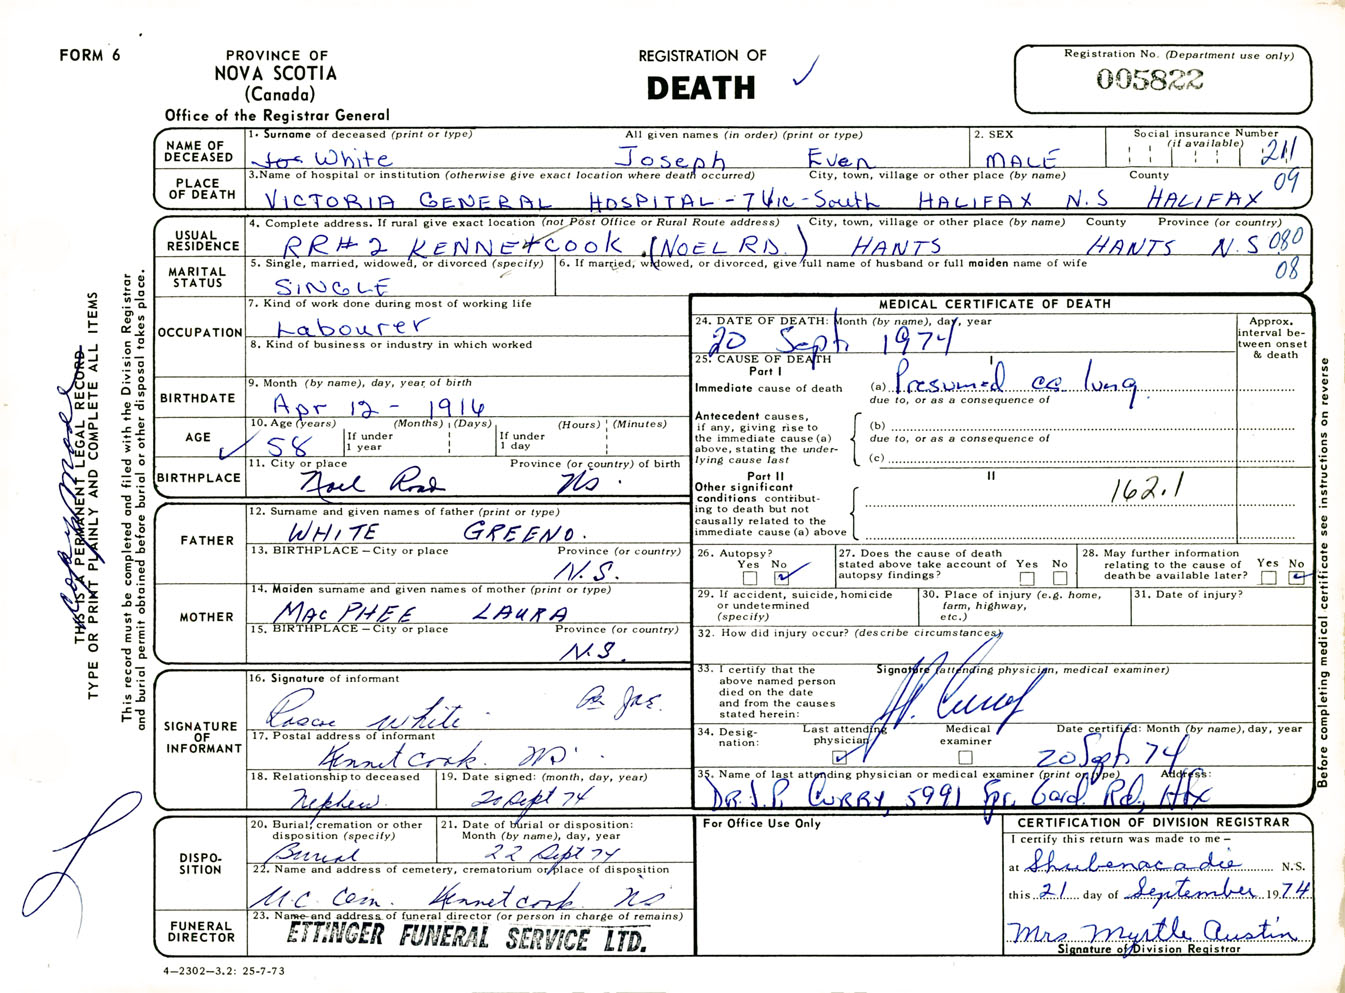 FORM 6
PROVINCE OF
NOVA SCOTIA
(Canada)
Office of the Registrar General
REGISTRATION OF
DEATH
Registration No. (Department use only)
005822
NAME OF DECEASED
1. Surname of deceased (print or type) All given names (in order) (print or type)
White Joseph Even
2. SEX
MALE
Social insurance Number
(if available)
211
PLACE OF DEATH
3. Name of hospital or institution (otherwise give exact location where death occurred) City, town, village or other place (by name) County
09
VICTORIA GENERAL HOSPITAL - 7 Vic - South HALIFAX N.S HALIFAX
USUAL RESIDENCE
4. Complete address. If rural give exact location (not Post Office or Rural Route address) City, town, village or other place (by name) County Province (or country)
RR#2 KENNETCOOK (NOEL RD.) HANTS HANTS N.S 080
08
MARITAL STATUS
5. Single, married, widowed, or divorced (specify)
SINGLE
6. If married, widowed, or divorced, give full name of husband or full maiden name of wife
OCCUPATION
7. Kind of work done during most of working life
Labourer
8. Kind of business or industry in which worked
BIRTHDATE
9. Month (by name), day, year of birth
Apr 12 - 1916
AGE
10. Age (years) (Months) (Days) (Hours) (Minutes)
58 If under 1 year If under 1 day
BIRTHPLACE
11. City or place Province (or country) of birth
Noel Road NS.
FATHER
12. Surname and given names of father (print or type)
WHITE GREENO.
13. BIRTHPLACE – City or place Province (or country)
N.S.
MOTHER
14. Maiden surname and given names of mother (print or type)
MacPHEE LAURA
15. BIRTHPLACE – City or place Province (or country)
N.S.
SIGNATURE OF INFORMANT
16. Signature of informant
Roscoe White
17. Postal address of informant
Kennetcook. NS.
18. Relationship to deceased
Nephew.
19. Date signed: (month, day, year)
20 Sept 74
DISPO-
SITION
20. Burial, cremation or other disposition (specify)
Burial
21. Date of burial or disposition: Month (by name), day, year
22 Sept 74
22. Name and address of cemetery, crematorium or place of disposition
U.C. Cem. Kennetcook NS
FUNERAL DIRECTOR
23. Name and address of funeral director (or person in charge of remains)
ETTINGER FUNERAL SERVICE LTD.
4—2302—3.2: 25-7-73
MEDICAL CERTIFICATE OF DEATH
24. DATE OF DEATH: Month (by name), day, year
20 Sept 1974
Approx. interval be-
tween onset & death
25. CAUSE OF DEATH
Part I I
Immediate cause of death (a) Presumed ca lung
due to, or as a consequence of
Antecedent causes, if any, giving rise to the immediate cause (a) above, stating the under-
lying cause last
(b)
due to, or as a consequence of
(c)
Part II II
Other significant conditions contribut-
ing to death but not causally related to the immediate cause (a) above
162.1
26. Autopsy?
Yes No
27. Does the cause of death stated above take account of autopsy findings?
Yes No
28. May further information relating to the cause of death be available later?
Yes No
29. If accident, suicide, homicide or undetermined (specify)
30. Place of injury (e.g. home, farm, highway, etc.)
31. Date of injury?
32. How did injury occur? (describe circumstances)
33. I certify that the above named person died on the date and from the causes stated herein:
Signature (attending physician, medical examiner)
34. Desig-
nation:
Last attending physician
Medical examiner
Date certified: Month (by name), day, year
20 Sept 74
35. Name of last attending physician or medical examiner (print or type) Address:
Dr. J.P. CURRY, 5991 Spr. Gard. Rd, Hfx
For Office Use Only
CERTIFICATION OF DIVISION REGISTRAR
I certify this return was made to me –
at Shubenacadie N.S.
this 21 day of September 1974
Mrs Myrtle Austin
Signature of Division Registrar
THIS IS A PERMANENT LEGAL RECORD
TYPE OR PRINT PLAINLY AND COMPLETE ALL ITEMS
This record must be completed and filed with the Division Registrar
and burial permit obtained before burial or other disposal takes place.
Before completing medical certificate see instructions on reverse